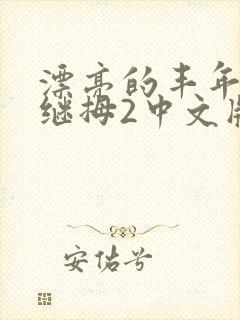 漂亮的丰年
继拇2中文版
安佑兮